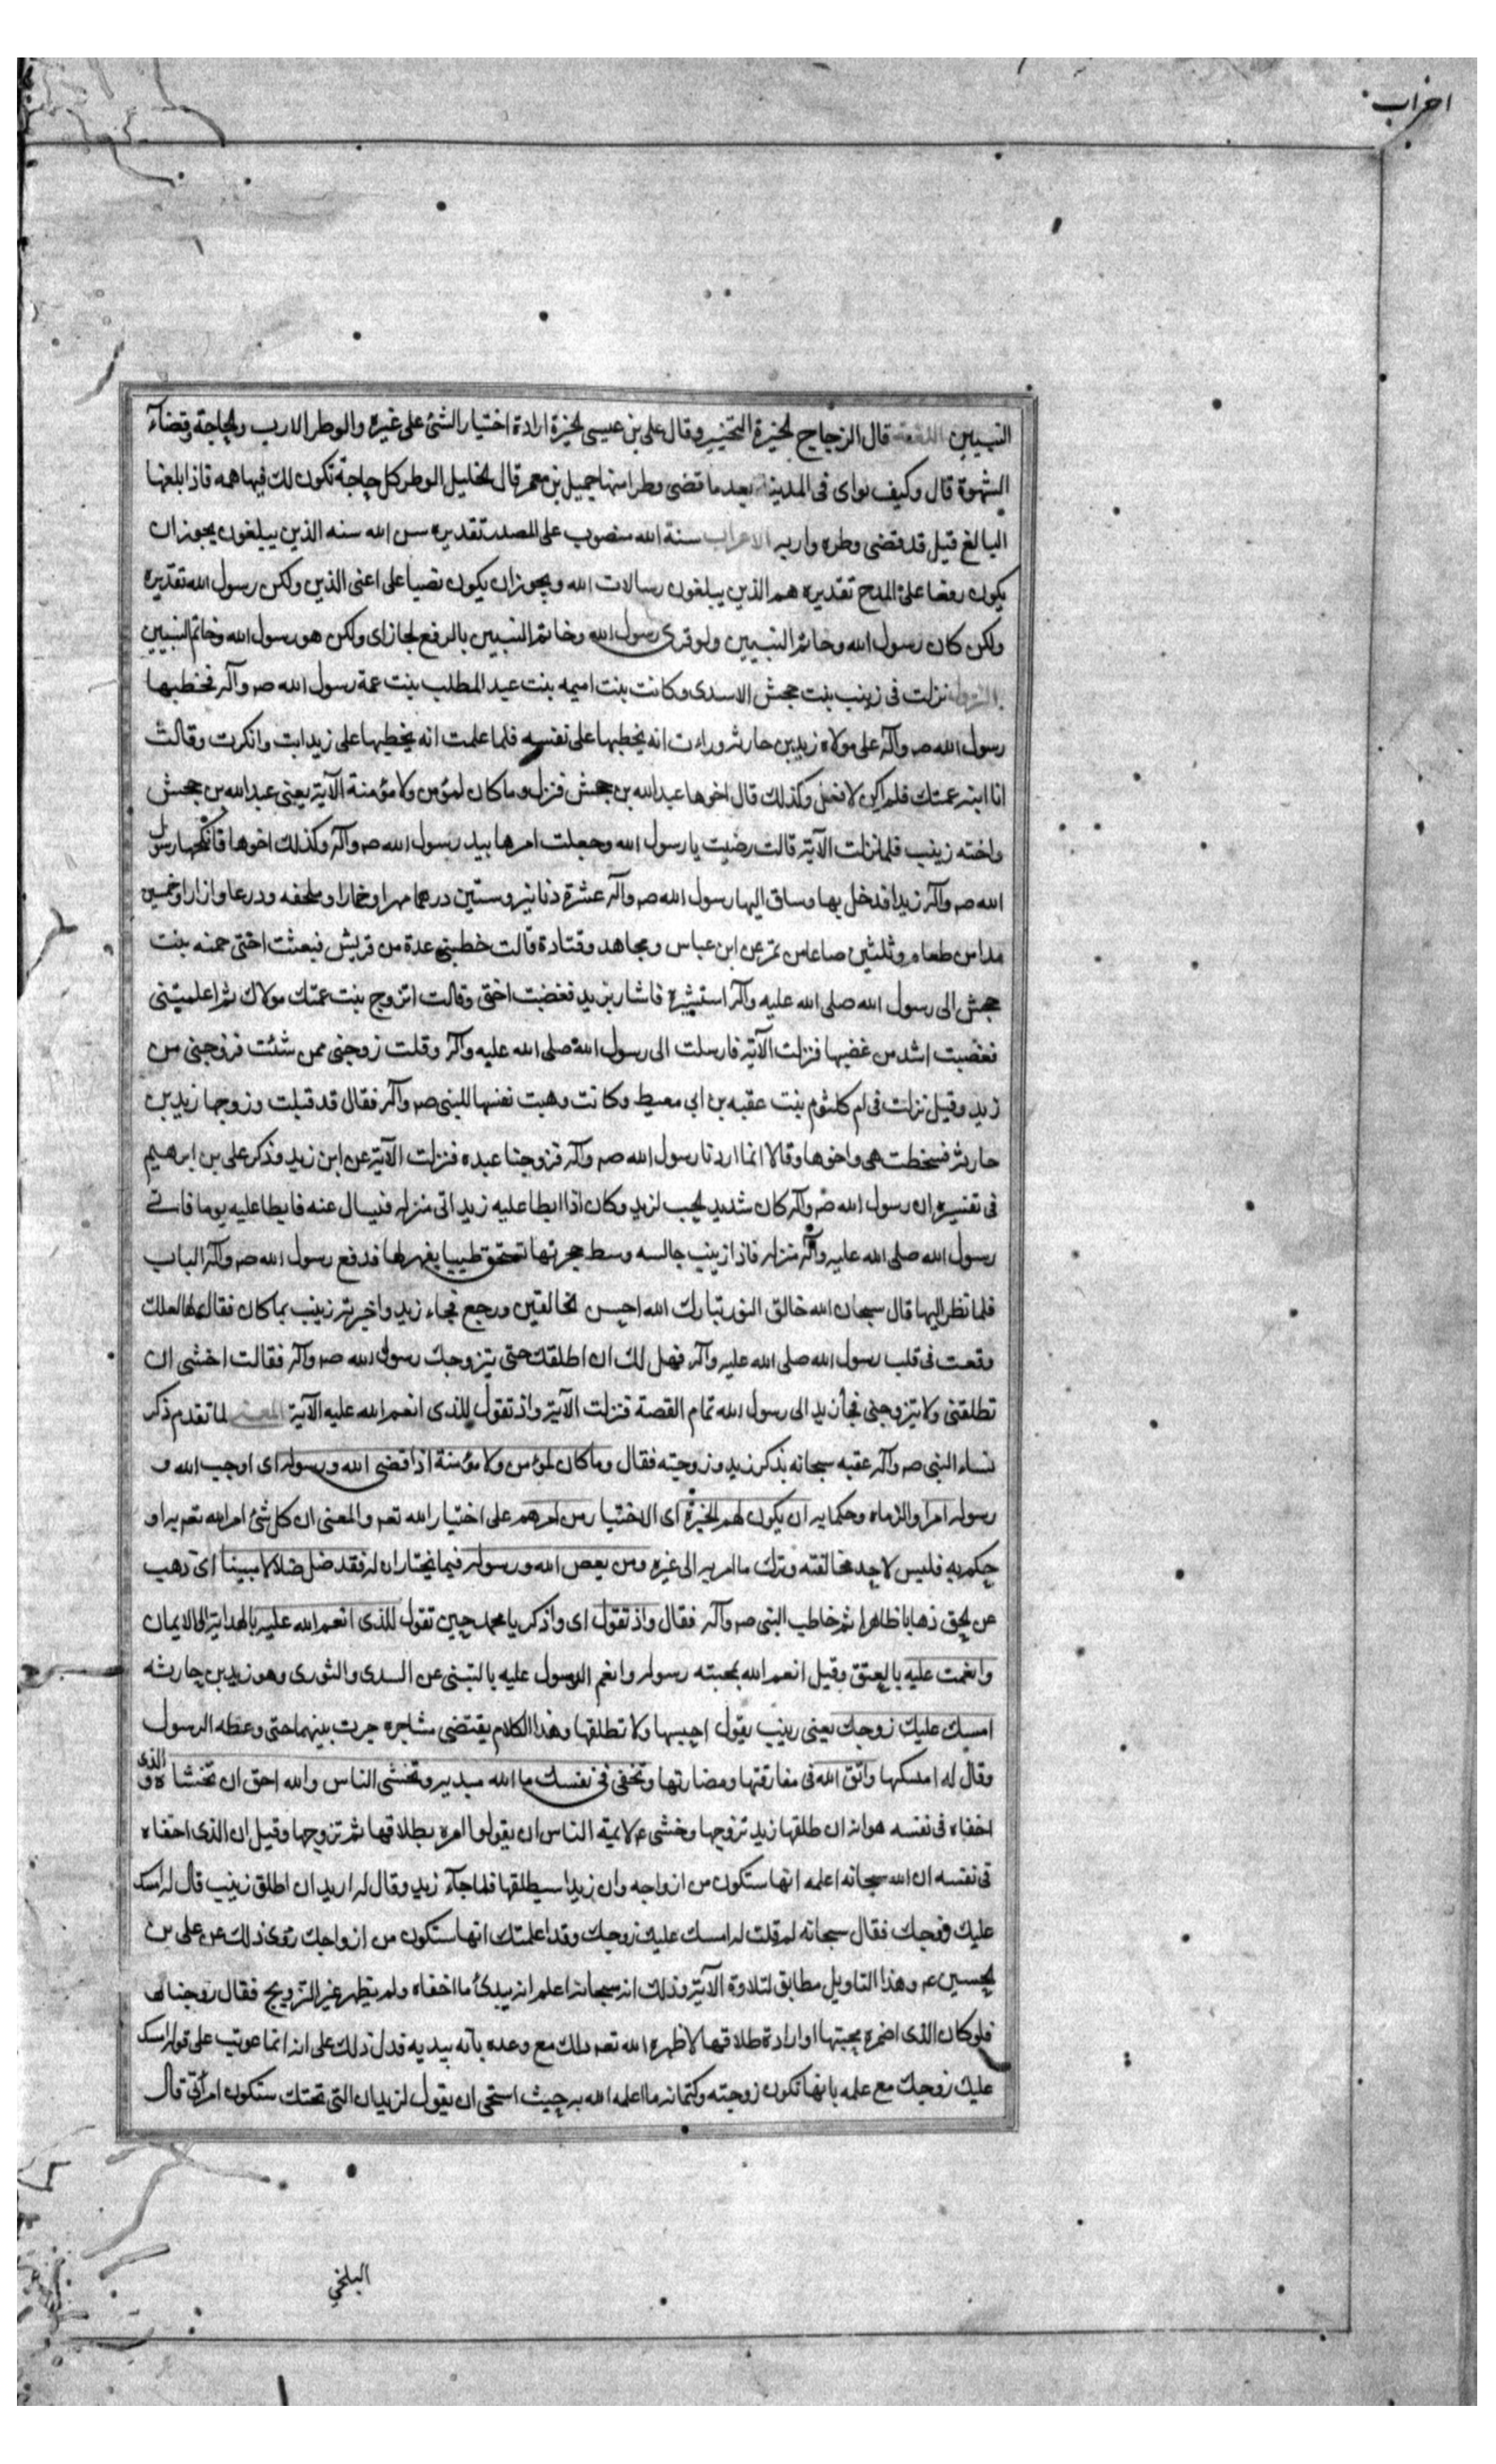 احزاب
النبيين اللغة قال الزجاج الخيرة التخيير وقال على بن عيسى الخيرة ارادة اختيار الشئ على غيره والوطر الارب والحاجة وقضاء
الشهوة قال وكيف ثواى فى المدينة بعد ما قضى وطرا منها جميل بن معمر قال الخليل الوطر كل حاجة تكون لك فيها همه فاذا بلغها
البالغ قيل قد قضى وطره واربه الاعراب سنة الله منصوب على المصدر تقديره سن الله سنه الذين يبلغون يجوز ان
يكون رفعا على المدح تقديره هم الذين يبلغون رسالات الله ويجوز ان يكون نصبا على اعنى الذين ولكن رسول الله تقديره
ولكن كان رسول الله وخاتم النبيين ولو قرى رسول الله وخاتم النبيين بالرفع لجاز اى ولكن هو رسول الله وخاتم النبيين
النزول نزلت فى زينب بنت جحش الاسدى وكانت بنت اميمه بنت عبد المطلب بنت عمة رسول الله صم وآله فخطبها
رسول الله صم وآله على مولاه زيد بن حارثه وراءت انه يخطبها على نفسه فلما علمت انه يخطبها على زيد ابت وانكرت وقالت
انا ابنه عمتك فلم اكن لافعل وكذلك قال اخوها عبد الله بن جحش فنزل وما كان لمؤمن ولا مؤمنة الآية يعنى عبد الله بن جحش
واخته زينب فلما نزلت الآية قالت رضيت يا رسول الله وجعلت امرها بيد رسول الله صم وآله وكذلك اخوها فانكحها رسول
الله صم وآله زيدا فدخل بها وساق اليها رسول الله صم وآله عشرة دنانير وستين درهما مهرا وخمارا وملحفه ودرعا وازارا وخمسين
مدا من طعام وثلثين صاعا من تمر عن ابن عباس ومجاهد وقتادة قالت خطبنى عدة من قريش فبعثت اختى حمنه بنت
جحش الى رسول الله صلى الله عليه وآله استشيره فاشار بزيد فغضبت اختى وقالت اتزوج بنت عمتك مولاك ثم اعلمتنى
فغضبت اشد من غضبها فنزلت الآية فارسلت الى رسول الله صلى الله عليه وآله وقلت زوجنى ممن شئت فزوجنى من
زيد وقيل نزلت فى ام كلثوم بنت عقبه بن ابى معيط وكانت وهبت نفسها للنبى صم وآله فقال قد قبلت وزوجها زيد بن
حارثه فسخطت هى واخوها وقالا انما اردنا رسول الله صم وآله فزوجنا عبده فنزلت الآية عن ابن زيد وذكر على بن ابرهيم
فى تفسيره ان رسول الله صم وآله كان شديد الحب لزيد وكان اذا ابطا عليه زيد اتى منزله فيسال عنه فابطا عليه يوما فاتى
رسول الله صلى الله عليه وآله منزله فاذا زينب جالسه وسط حجرتها تسحق طيبا بفهر لها فدفع رسول الله صم وآله الباب
فلما نظر اليها قال سبحان الله خالق النور تبارك الله احسن الخالقين ورجع فجاء زيد واخبرته زينب بما كان فقال لها لعلك
وقعت فى قلب رسول الله صلى الله عليه وآله فهل لك ان اطلقك حتى يتزوجك رسول الله صم وآله فقالت اخشى ان
تطلقنى ولا يتزوجنى فجاء زيد الى رسول الله تمام القصة فنزلت الآية واذ تقول للذى انعم الله عليه الآية المعنى لما تقدم ذكر
نساء النبى صم وآله عقبه سبحانه بذكر زيد وزوجته فقال وما كان لمؤمن ولا مؤمنة اذا قضى الله ورسوله اى اوجب الله و
رسوله امرا والزماه وحكما به ان يكون لهم الخيرة اى الاختيار من امرهم على اختيار الله تعم والمعنى ان كل شئ امر الله تعم به او
حكم به فليس لاحد مخالفته وترك ما امر به الى غيره ومن يعص الله ورسوله فيما يختاران له فقد ضل ضلالا مبينا اى ذهب
عن الحق ذهابا ظاهرا ثم خاطب النبى صم وآله فقال واذ تقول اى واذكر يا محمد حين تقول للذى انعم الله عليه بالهداية الى الايمان
وانعمت عليه بالعتق وقيل انعم الله بمحبته رسوله وانعم الرسول عليه بالتبنى عن السدى والثورى وهو زيد بن حارثه
امسك عليك زوجك يعنى زينب يقول احبسها ولا تطلقها وهذا الكلام يقتضى مشاجره جرت بينهما حتى وعظه الرسول
وقال له امسكها واتق الله فى مفارقتها ومضارتها وتخفى فى نفسك ما الله مبديه وتخشى الناس والله احق ان تخشاه والذى
اخفاه فى نفسه هو انه ان طلقها زيد تزوجها وخشى عم لائمة الناس ان يقولوا امره بطلاقها ثم تزوجها وقيل ان الذى اخفاه
فى نفسه ان الله سبحانه اعلمه انها ستكون من ازواجه وان زيدا سيطلقها فلما جآء زيد وقال له اريد ان اطلق زينب قال له امسك
عليك زوجك فقال سبحانه لم قلت له امسك عليك زوجك وقد اعلمتك انها ستكون من ازواجك روى ذلك عن على بن
الحسين عم وهذا التاويل مطابق لتلاوة الآية وذلك انه سبحانه اعلم انه يبدئ ما اخفاه ولم يظهر غير التزويج فقال زوجناكها
فلو كان الذى اضمره محبتها او ارادة طلاقها لاظهره الله تعم ذلك مع وعده بانه يبديه فدل ذلك على انه انما عوتب على قوله امسك
عليك زوجك مع علمه بانها تكون زوجته وكتمانه ما اعلمه الله به حيث استحى ان يقول لزيد ان التى تحتك ستكون امرأتى قال
البلخي